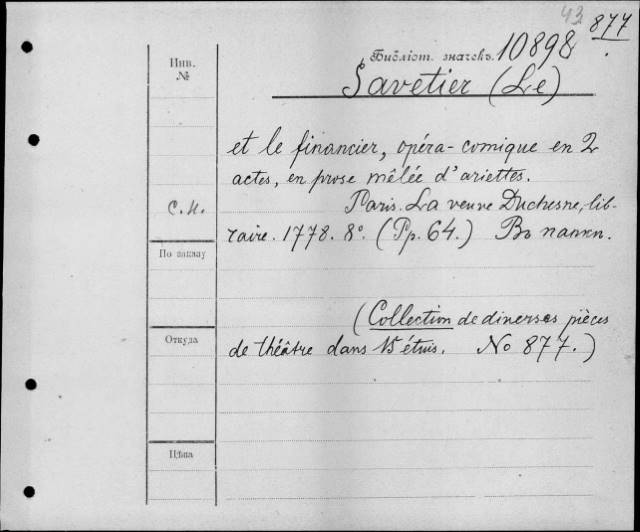 43 877
Инв. №
Библіот. значекъ. 10898
Savetier (Le)
et le financier, opéra-comique en 2
actes, en prose mêlée d'ariettes.
С.И. Paris. La veuve Duchesne, lib-
raire. 1778. 8°. (Pp. 64.) Въ папкп.
По заказу
(Collection de diverses pièces
Откуда
de théâtre dans 15 étuis. No 877.)
Цѣна